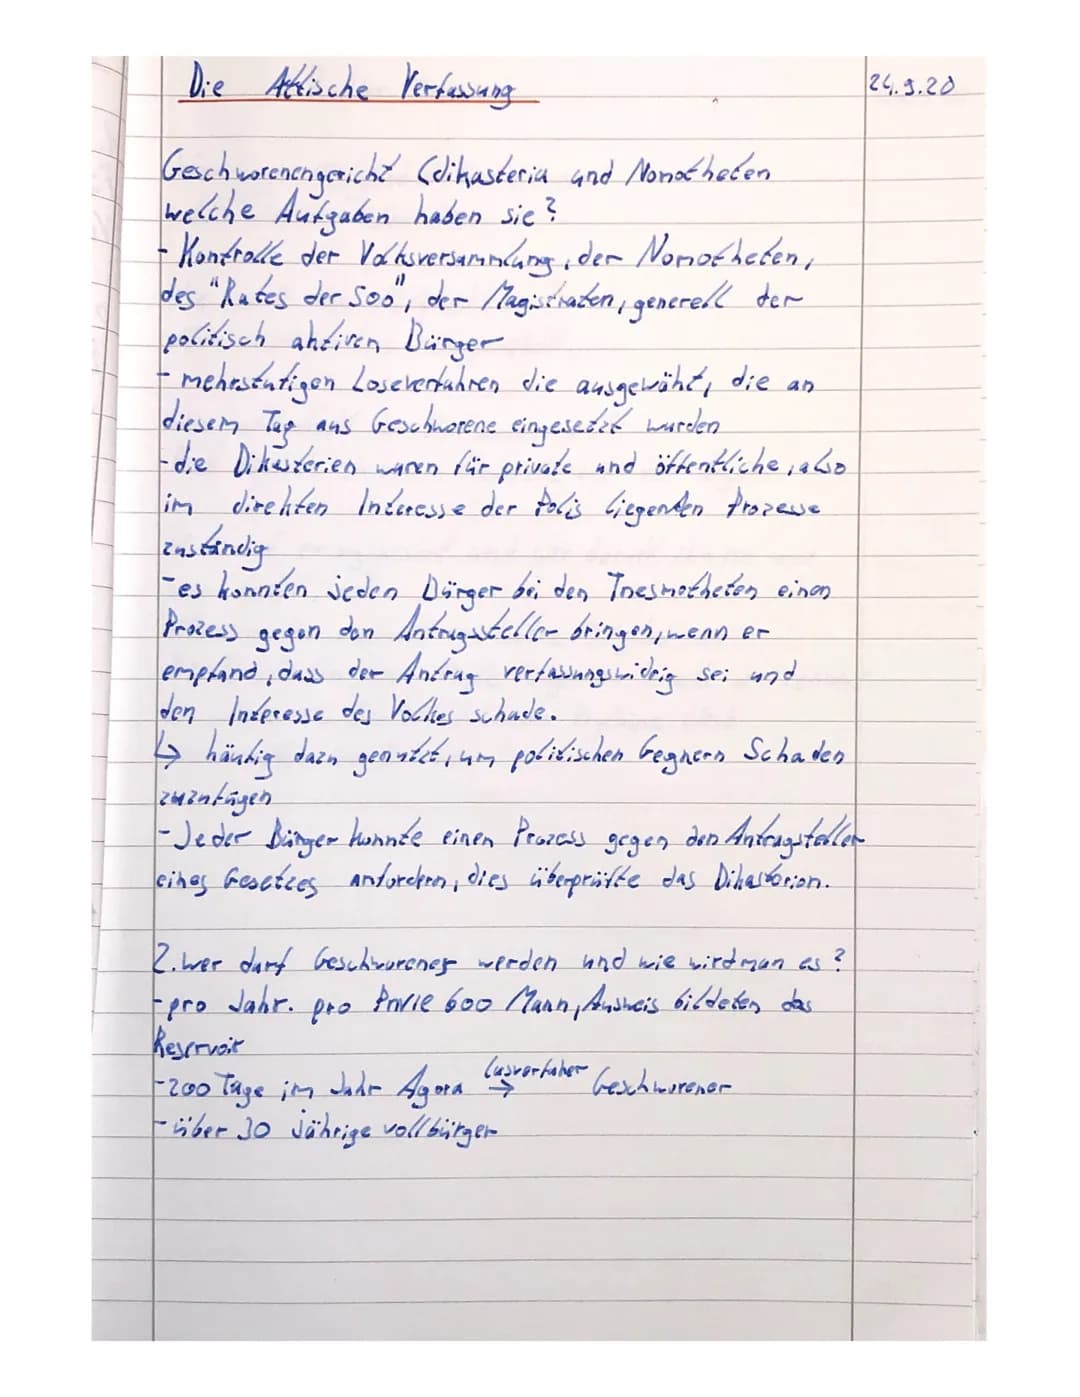 Die Attische Verfassung 24.9.20
Geschworenengericht (dikasteria und Nomotheten
welche Aufgaben haben sie?
- Kontrolle der Volksversammlung, der Nomotheten,
des "Rates der 500", der Magistraten, generell der
politisch aktiven Bürger
- mehrstufigen Loseverfahren die ausgewäht, die an
diesem Tag aus Geschworene eingesetzt wurden
- die Dikasterien waren für private und öffentliche, also
im direkten Interesse der Polis liegenden Prozesse
zuständig
- es konnten jeden Bürger bei den Tnesmotheten einen
Prozess gegen den Antragssteller bringen, wenn er
empfand, dass der Antrag verfassungswidrig sei und
den Interesse des Volkes schade.
↳ häufig dazu genutzt, um politischen Gegnern Schaden
zuzufügen
- Jeder Bürger konnte einen Prozess gegen den Antragsteller
eines Gesetzes anfordern, dies überprüfte das Dikasterion.
2. wer darf Geschworener werden und wie wird man es?
- pro Jahr. pro 600 Mann, Ausweis bildeten das
Reservoir
- 200 Tage im Jahr Agora Losverfaher → Geschworener
- über 30 jährige vollbürger